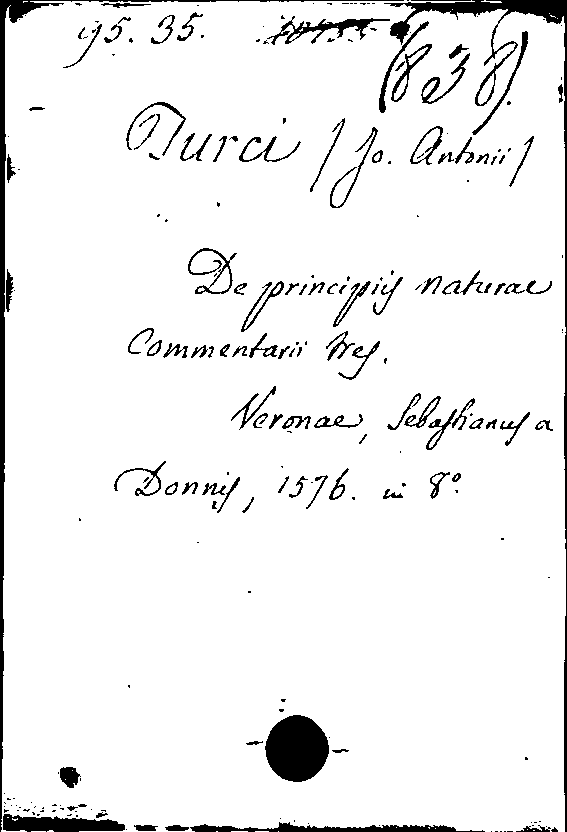 95. 35.
(838).
Turci / Jo. Antonii /
De principiis naturae
Commentarii tres.
Veronae, Sebastianus a
Donnis, 1576. in 8°.